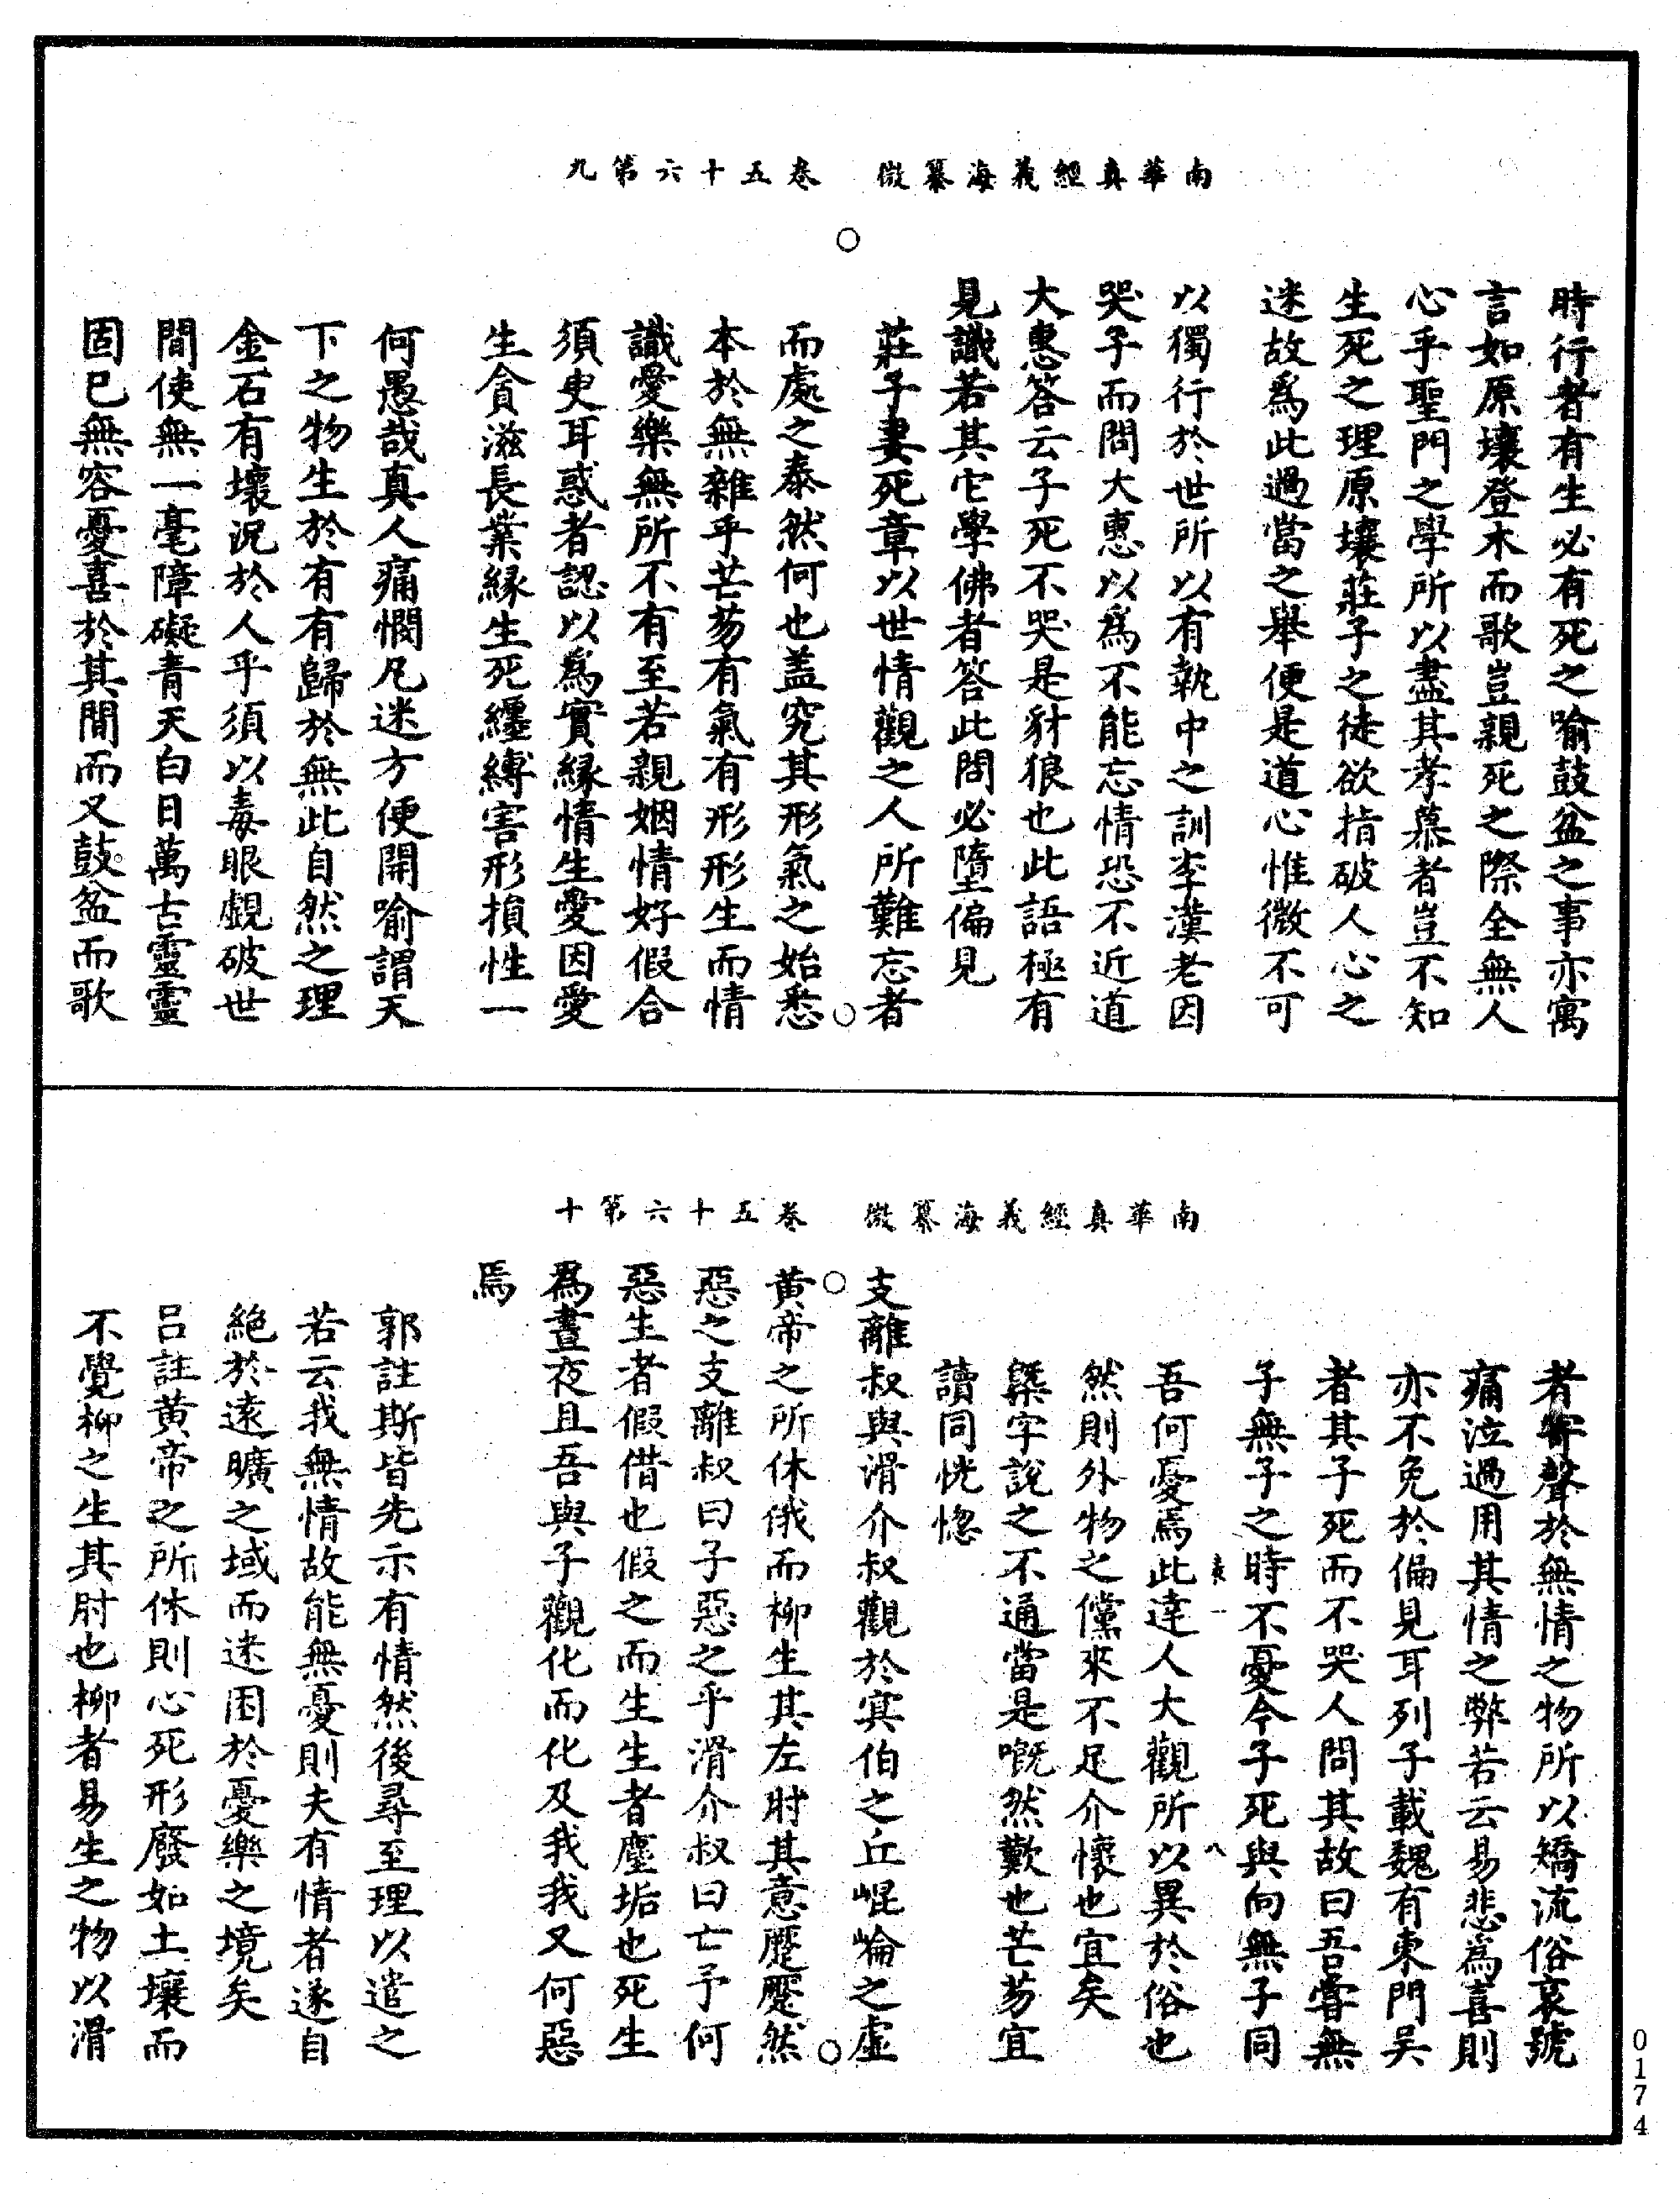 南華真經義海纂微　卷五十六第九
時行者有生必有死之喻鼓盆之事亦寓
言如原壤登木而歌豈親死之際全無人
心乎聖門之學所以盡其孝慕者豈不知
生死之理原壤莊子之徒欲指破人心之
迷故爲此過當之舉便是道心惟微不可
以獨行於世所以有執中之訓李漢老因
哭子而問大惠以爲不能忘情恐不近道
大惠答云子死不哭是豺狼也此語極有
見識若其它學佛者答此問必墮偏見
莊子妻死章以世情觀之人所難忘者
而處之泰然何也盖究其形氣之始悉
本於無雜乎芒芴有氣有形形生而情
識愛樂無所不有至若親姻情好假合
須臾耳惑者認以爲實緣情生愛因愛
生貪滋長業緣生死纏縛害形損性一
何愚哉真人痛憫凡迷方便開喻謂天
下之物生於有有歸於無此自然之理
金石有壞況於人乎須以毒眼覷破世
間使無一毫障礙青天白日萬古靈靈
固已無容憂喜於其間而又鼓盆而歌
南華真經義海纂微　卷五十六第十
者寄聲於無情之物所以矯流俗哀號
痛泣過用其情之弊若云易悲爲喜則
亦不免於偏見耳列子載魏有東門吳
者其子死而不哭人問其故曰吾嘗無
子無子之時不憂今子死與向無子同
吾何憂焉此達人大觀所以異於俗也
然則外物之儻來不足介懷也宜矣
槩字說之不通當是嘅然歎也芒芴宜
讀同恍惚
支離叔與滑介叔觀於冥伯之丘崐崘之虛
黃帝之所休俄而柳生其左肘其意蹷蹷然
惡之支離叔曰子惡之乎滑介叔曰亡予何
惡生者假借也假之而生生者塵垢也死生
爲晝夜且吾與子觀化而化及我我又何惡
焉
郭註斯皆先示有情然後尋至理以遣之
若云我無情故能無憂則夫有情者遂自
絕於遠曠之域而迷困於憂樂之境矣
呂註黃帝之所休則心死形廢如土壤而
不覺柳之生其肘也柳者易生之物以滑
0174